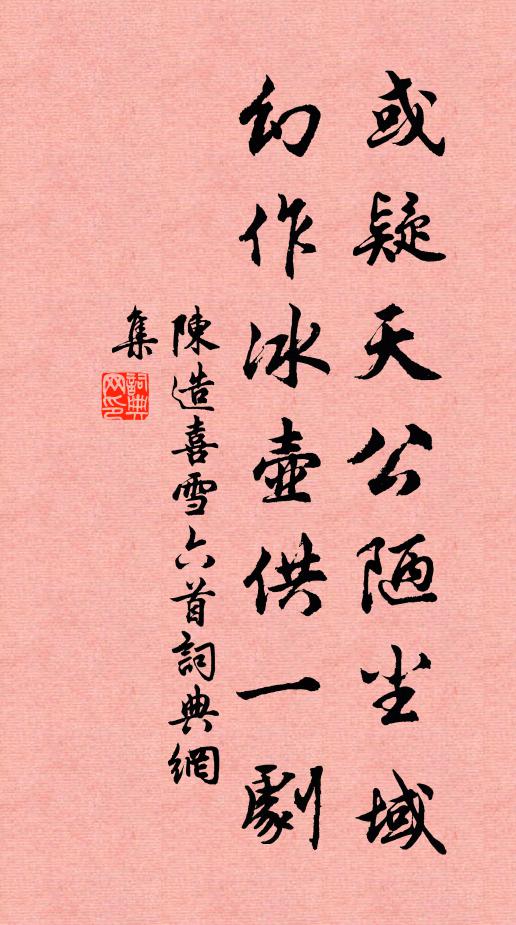 或疑天公陋尘域
幻作冰壺供一劇
陳造喜雪六首詞典網
集
詞典网印